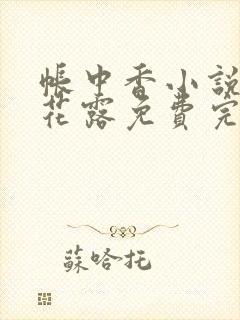 帳中香小說
花露免費完
蘇哈托